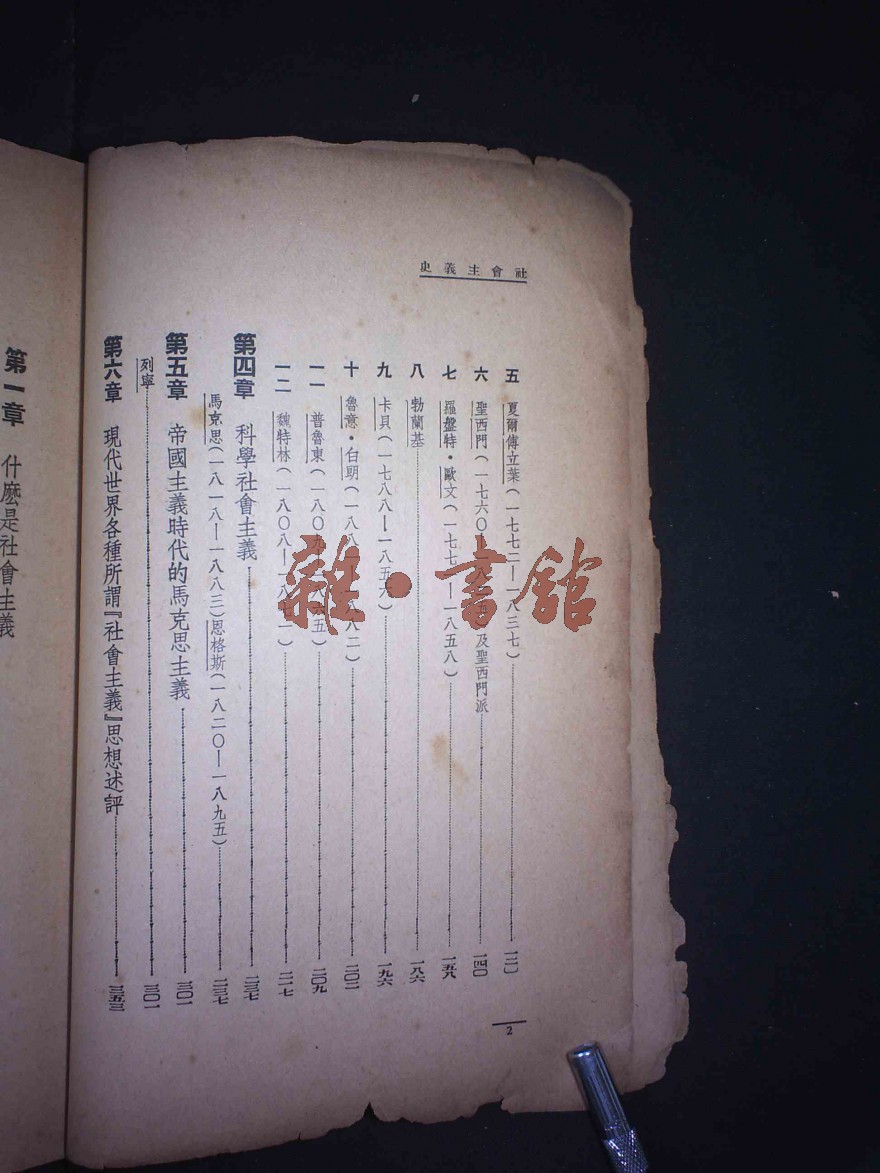 社會主義史
五 夏爾傅立葉(一七七二—一八三七)……一二一
六 聖西門(一七六〇—一八二五)及聖西門派……一四〇
七 羅盤特·歐文(一七七一—一八五八)……一五八
八 勃蘭基……一八六
九 卡貝(一七八八—一八五六)……一九六
十 魯意·白朗……二〇二
一一 普魯東(一八〇九—一八六五)……二〇九
一二 魏特林(一八〇八—一八七一)……二一七
第四章 科學社會主義……二三七
馬克思(一八一八—一八八三)恩格斯(一八二〇—一八九五)……二三七
第五章 帝國主義時代的馬克思主義……三〇一
列寧……三〇一
第六章 現代世界各種所謂『社會主義』思想述評……三五三
2
第一章 什麼是社會主義
雜·書館